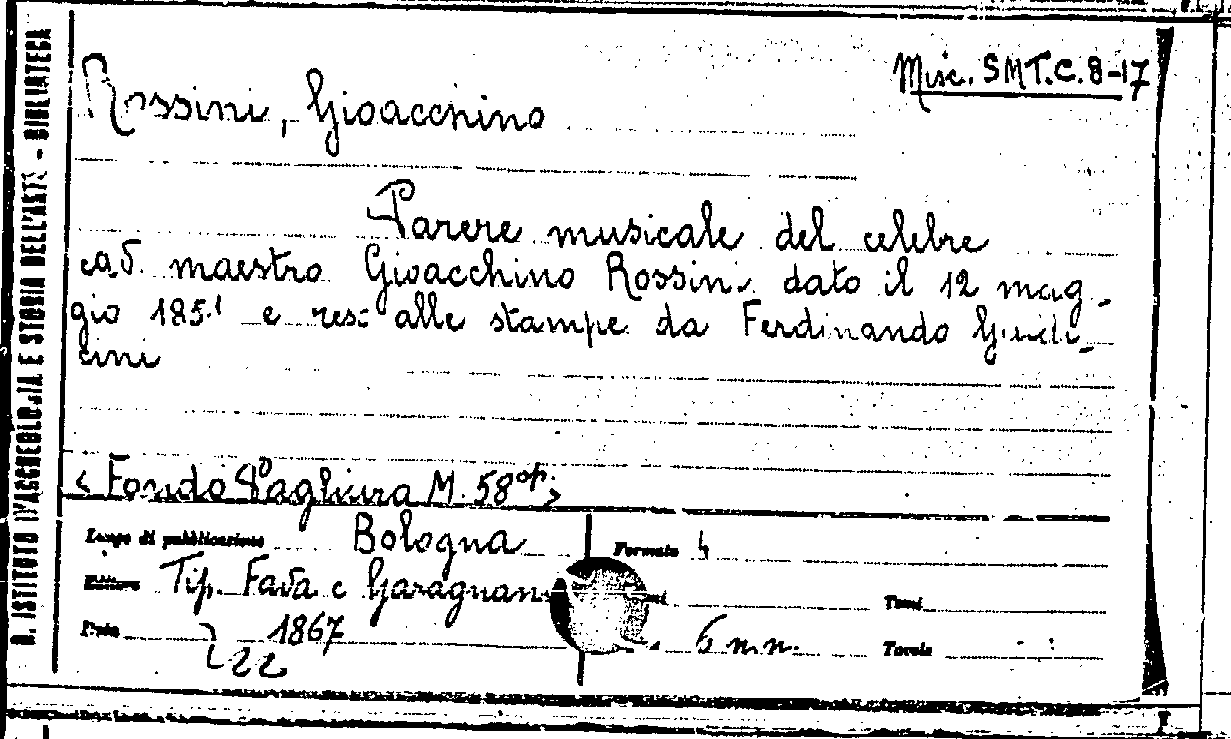 R. ISTITUTO D'ARCHEOLOGIA E STORIA DELL'ARTE - BIBLIATECA
Misc. SMT.C.8-17
Rossini, Gioacchino
Parere musicale del celebre
cav. maestro Gioacchino Rossini dato il 12 mag-
gio 1851 e reso alle stampe da Ferdinando Guidi-
cini
< Fondo Pagliura M. 58 op. >
Luogo di pubblicazione Bologna Formato 4
Editore Tip. Fava e Garagnani
Tomi
Data 1867 6 n.n. Tavole